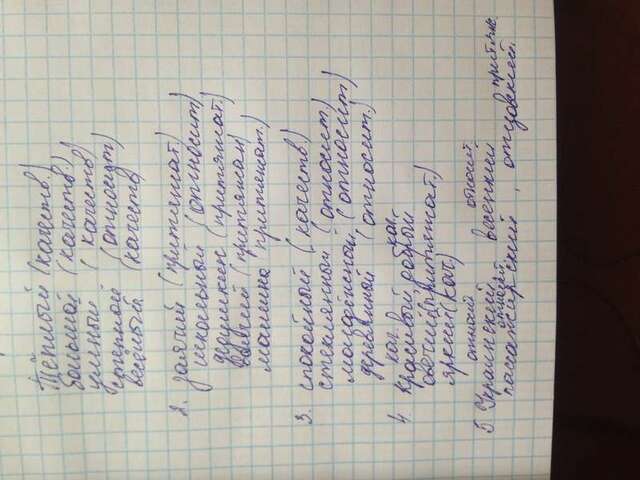 тёплый (качеств.)
большой (качеств.)
умный (качеств)
степной (относит)
весёлый (качеств)
2. заячий (притяжат.)
школьный (относит)
дедушкин (притяжат.)
волчий (притяжат)
мамина притяжат.)
3. спокойный (качеств.)
стеклянный (относит.)
молодёжный (относит)
деревянный (относит.)
кач. кач.
4. красивый, добрый
овечий (притяжат.)
яркий (кач.)
относит относит.
5. Украинский, весенний
относит. притяж.
пассажирский, отцовский.